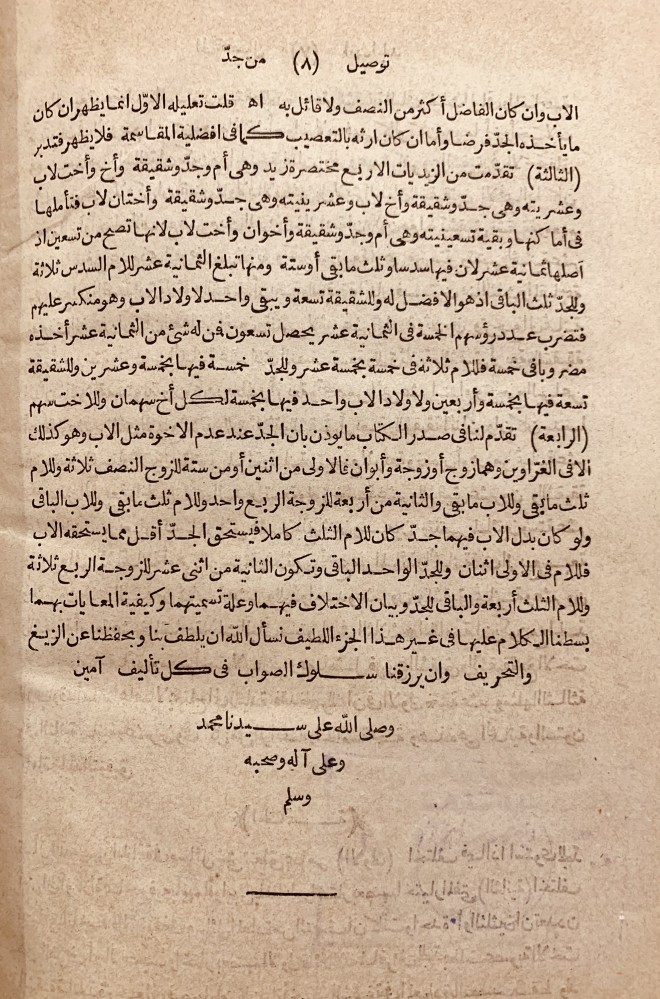 توصيل (٨) من جدّ
الاب وان كان الفاضل أكثر من النصف ولا قائل به اه قلت تعليله الاوّل انما يظهر ان كان
ما يأخذه الجدّ فرضا وأما ان كان ارثه بالتعصيب كما فى افضلية المقاسمة فلا يظهر فتدبر
(الثالثة) تقدّمت من الزيديات الاربع مختصرة زيد وهى أم وجدّ وشقيقة وأخ وأخت لاب
وعشريته وهى جدّ وشقيقة وأخ لاب وعشرينيته وهى جدّ وشقيقة وأختان لاب فتأملها
فى أماكنها وبقية تسعينيته وهى أم وجدّ وشقيقة وأخوان وأخت لاب لانها تصح من تسعين اذ
أصلها ثمانية عشر لان فيها سدسا وثلث ما بقى أو ستة ومنها تبلغ الثمانية عشر للام السدس ثلاثة
وللجدّ ثلث الباقى اذ هو الافضل له وللشقيقة تسعة ويبقى واحد لاولاد الاب وهو منكسر عليهم
فتضرب عدد رؤسهم الخمسة فى الثمانية عشر يحصل تسعون فمن له شئ من الثمانية عشر أخذه
مضروبا فى خمسة فللام ثلاثة فى خمسة بخمسة عشر وللجدّ خمسة فيها بخمسة وعشرين وللشقيقة
تسعة فيها بخمسة وأربعين ولاولاد الاب واحد فيها بخمسة لكل أخ سهمان وللاخت سهم
(الرابعة) تقدّم لنا فى صدر الكتاب ما يوذن بان الجدّ عند عدم الاخوة مثل الاب وهو كذلك
الا فى الغرّاوين وهما زوج أو زوجة وأبوان فالاولى من اثنين أو من ستة للزوج النصف ثلاثة وللام
ثلث ما بقى وللاب ما بقى والثانية من أربعة للزوجة الربع واحد وللام ثلث ما بقى وللاب الباقى
ولو كان بدل الاب فيهما جدّ كان للام الثلث كاملا فيستحق الجدّ أقل مما يستحقه الاب
فللام فى الاولى اثنان وللجدّ الواحد الباقى وتكون الثانية من اثنى عشر للزوجة الربع ثلاثة
وللام الثلث أربعة والباقى للجدّ وبيان الاختلاف فيهما وعلة تسميتهما وكيفية المعايات بهما
بسطنا الكلام عليها فى غير هذا الجزء اللطيف نسأل الله ان يلطف بنا ويحفظنا عن الزيغ
والتحريف وان يرزقنا سلوك الصواب فى كل تأليف آمين
وصلى الله على سيدنا محمد
وعلى آله وصحبه
وسلم